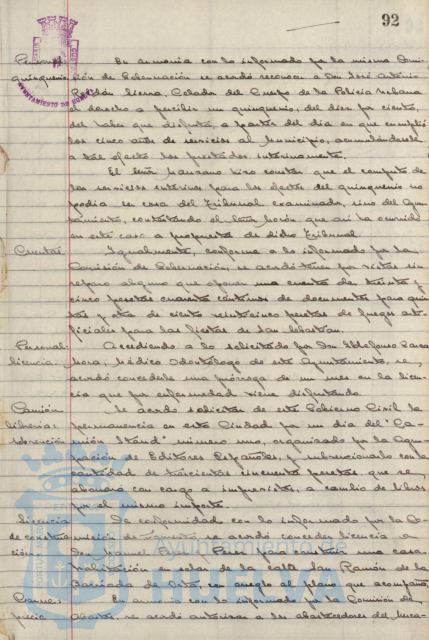 92
Personal En armonia con lo informado por la misma Comi-
quinquenio sión de Gobernación se acordó reconocer a Don José Antonio
Roldán Sierra, Celador del Cuerpo de la Policía Urbana
el derecho a percibir un quinquenio, del diez por ciento,
del haber que disfruta, a partir del día en que cumplió
los cinco años de servicios al Municipio, acumulándosele
a tal efecto los prestados interinamente.
El Señor Manzano hizo constar que el computo de
los servicios interinos para los efectos del quinquenio no
podia ser cosa del Tribunal examinador, sino del Ayun-
tamiento, contestando el Señor Morón que asi ha ocurrido
en este caso a propuesta de dicho Tribunal.
Cuentas Igualmente, conforme a lo informado por la
Comisión de Gobernación, se acordó tener por vistas sin
reparo alguno que oponer una cuenta de treinta y
cinco pesetas cuarenta céntimos de documentos para quin-
tas y otra de ciento veinticinco pesetas de fuegos arti-
ficiales para las fiestas de San Sebastián.
Personal- Accediendo a lo solicitado por Don Ildefonso
licencia Mora, Médico Odontólogo de este Ayuntamiento, se
acordó concederle una prórroga de un mes en la licen-
cia que por enfermedad viene disfrutando.
Camión Se acordó solicitar de este Gobierno Civil la
librería- permanencia en esta Ciudad por un dia del "Ca-
subvención mión Stand" número uno, organizado por la Agru-
pación de Editores Españoles, y subvencionarlo con la
cantidad de trescientas cincuenta pesetas que se
abonará con cargo a imprevistos, a cambio de libros
por el mismo importe.
Licencia De conformidad con lo informado por la Co-
de construc- misión de Fomento se acordó conceder licencia a
ción Don Manuel Perez para construir una casa
habitación en solar de la calle San Ramón de la
Barriada de Orta, con arreglo al plano que acompaña.
Carnes En armonia con lo informado por la Comisión de
precio Abastos, se acordó autorizar a los abastecedores del Merca-
Ayuntamiento de
HUELVA